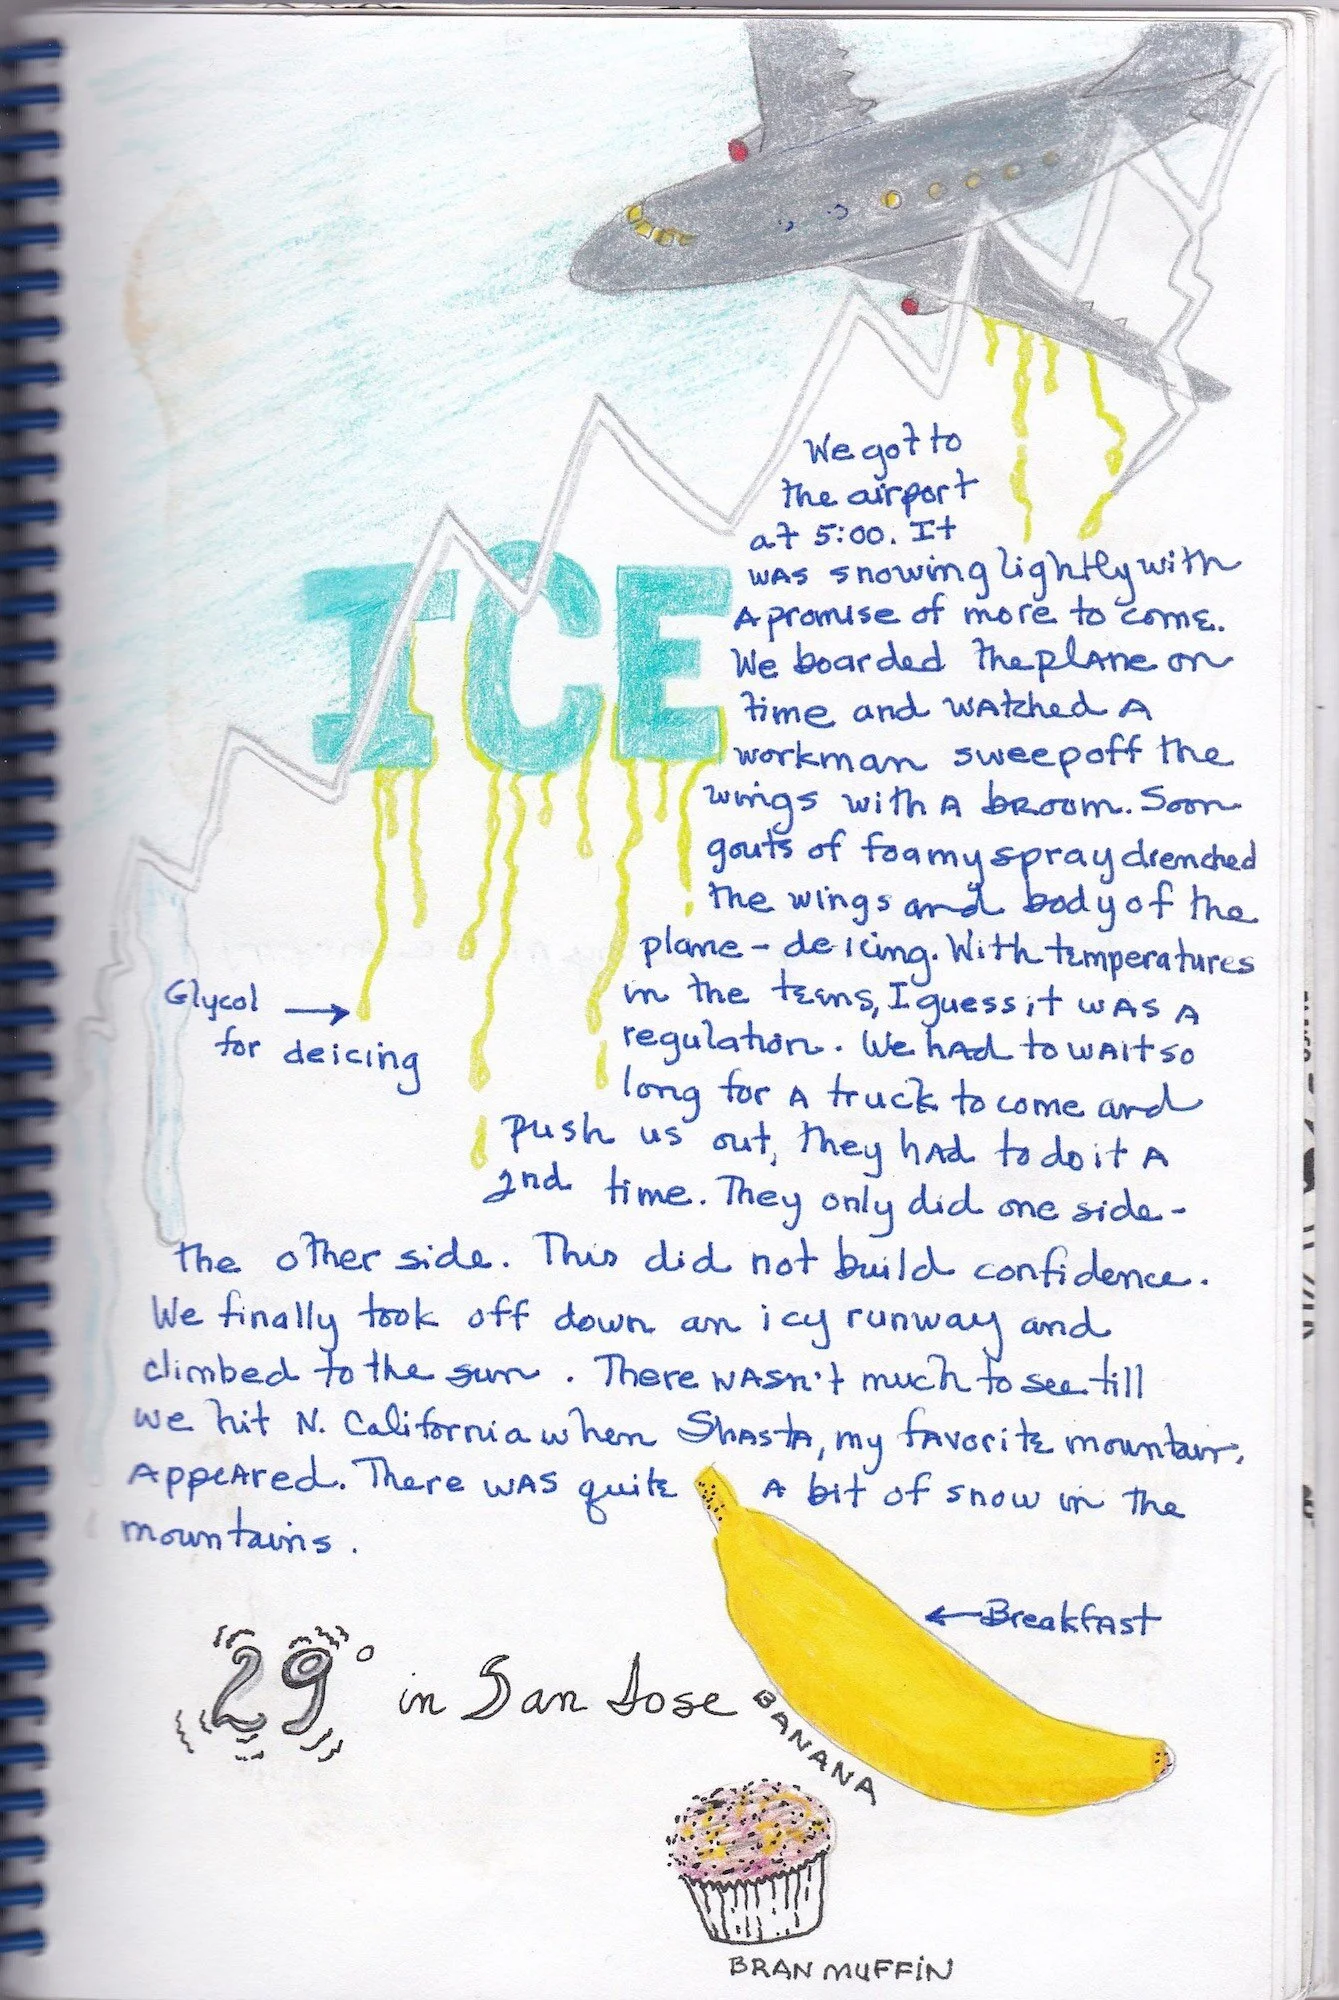 We got to
the airport
at 5:00. It
was snowing lightly with
a promise of more to come.
ICE
We boarded the plane on
time and watched a
workman sweep off the
wings with a broom. Soon
gouts of foamy spray drenched
the wings and body of the
plane - deicing. With temperatures
in the teens, I guess it was a
regulation. We had to wait so
long for a truck to come and
push us out, they had to do it a
2nd time. They only did one side -
the other side. This did not build confidence.
We finally took off down an icy runway and
climbed to the sun. There wasn't much to see till
we hit N. California when Shasta, my favorite mountain,
appeared. There was quite a bit of snow in the
mountains.
Glycol
for deicing
Breakfast
29° in San Jose
BANANA
BRAN MUFFIN